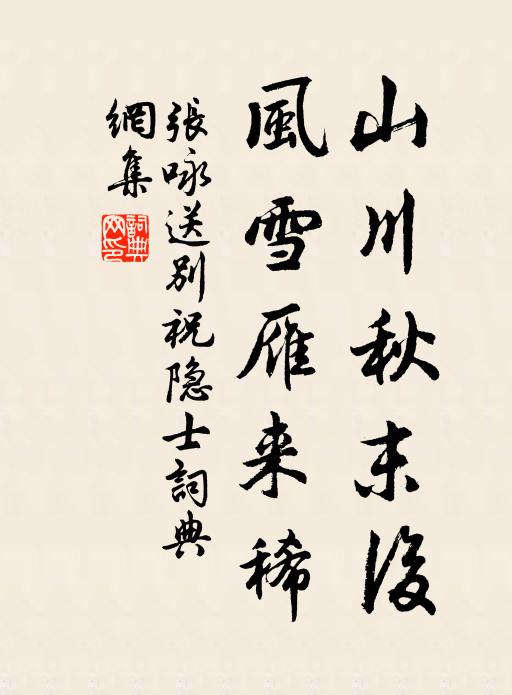 山川秋末後
風雪雁来稀
張咏送别祝隐士詞典
網集
詞典網印